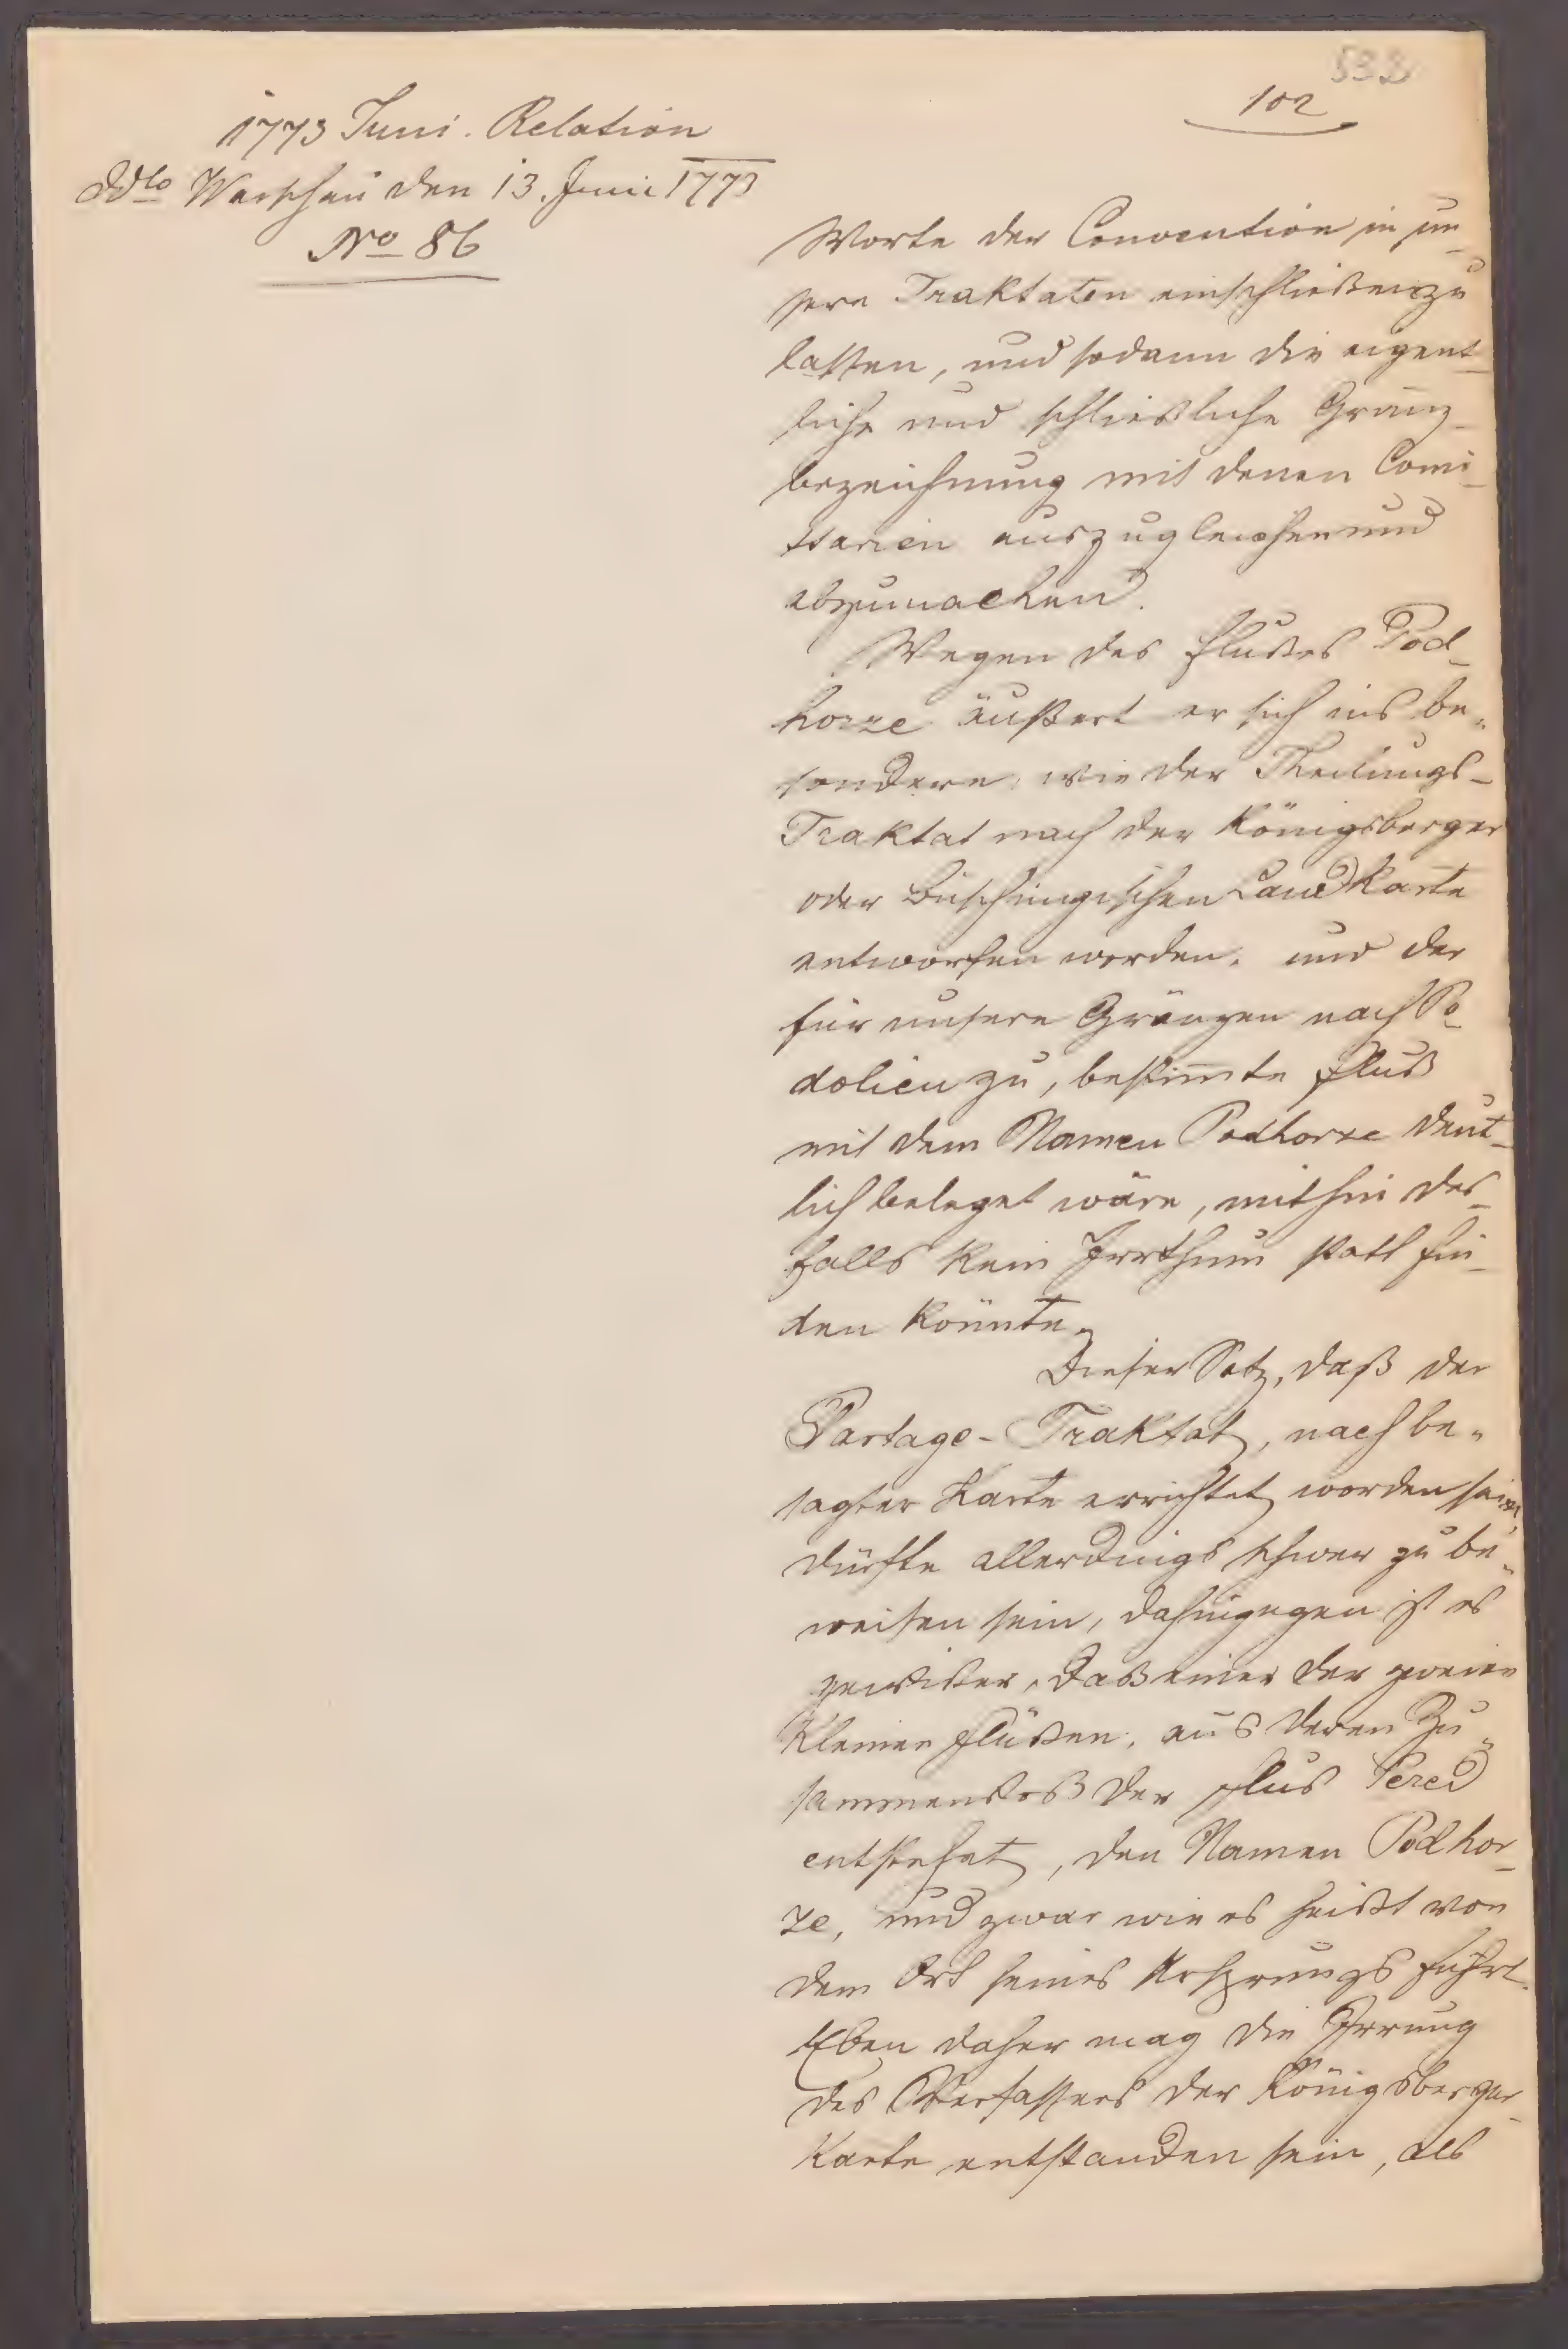 102
1773 Juni. Relation
ddto Warschau den 13. Juni 1773
No 86
Worte der Convention in un-
sere Traktaten einschließen zu
lassen, und sodann die eigent-
liche und schließliche Gränz-
bezeichnung mit denen Comi-
ssarien auszugleichen und
abzumachen.
Wegen des Flußes Pod-
horze äußert er sich ins be-
sondere, wie der Theilungs-
Traktat nach der Königsberger
oder Büschingischen Landkarte
entworfen worden, und der
für unsere Gränzen nach Po-
dolien zu, bestim̄te Fluß
mit dem Namen Podhorze deut-
lich beleget wäre, mithin des-
falls kein Irrthum statt fin-
den könnte.
Dieser Satz, daß der
Partage-Traktat, nach be-
sagter Karte errichtet worden sein,
dürfte allerdings schwer zu be-
weisen sein, dahingegen ist es
gewißer, daß einer der zweien
kleinen Flüßen, aus deren Zu-
sammenstoß der Fluß Sered
entstehet, den Namen Podhor-
ze, und zwar wie es heißt von
dem Ort seines Ursprungs führt.
Eben daher mag die Irrung
des Verfassers der Königsberger
Karte entstanden sein, als